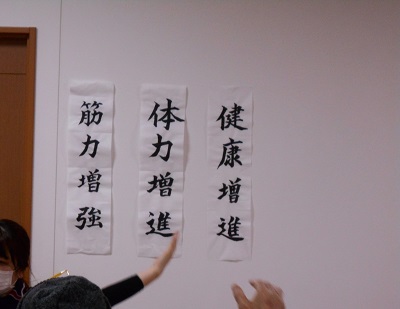 健康増進
体力増進
筋力増強